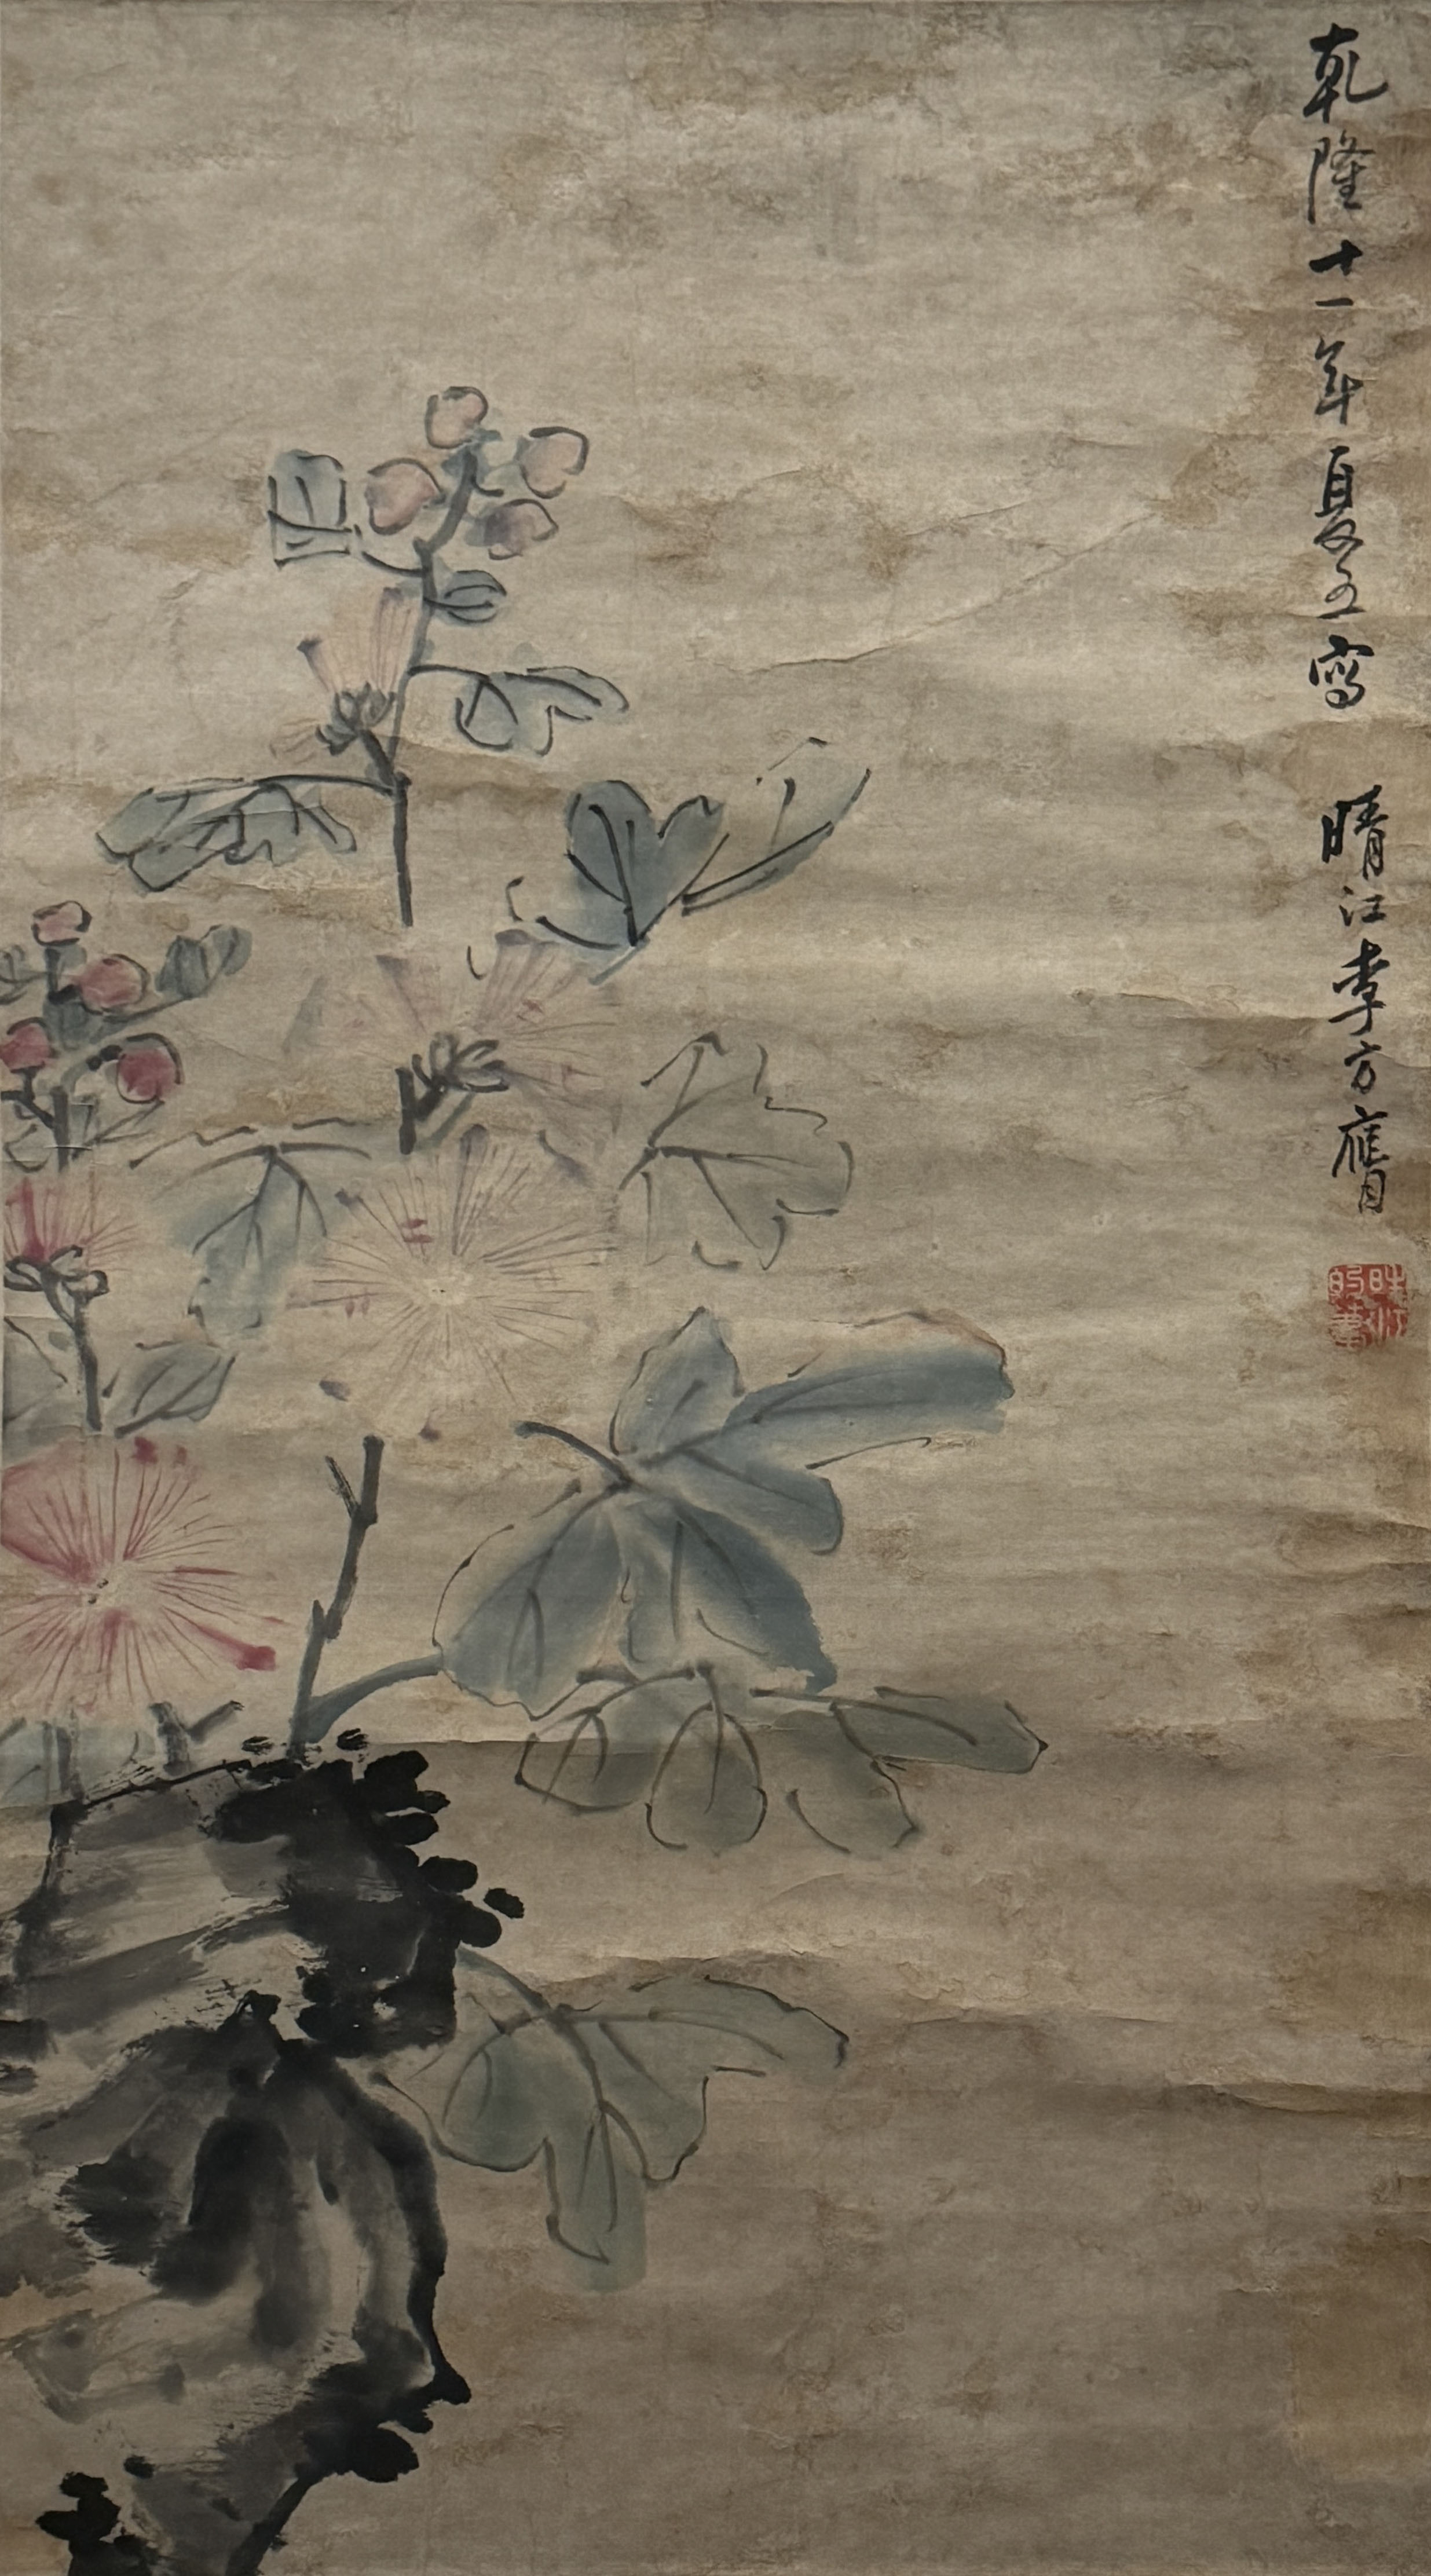 乾隆十一年夏五寫 晴江李方膺